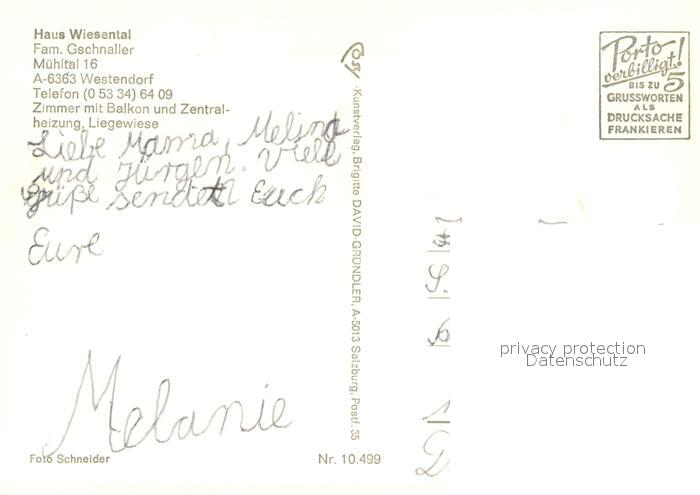 Haus Wiesental
Fam. Gschnaller
Mühltal 16
A-6363 Westendorf
Telefon (0 53 34) 64 09
Zimmer mit Balkon und Zentral-
heizung, Liegewiese
Liebe Mama, Melina
und Jürgen. Viele
Grüße sendet Euch
Eure
Melanie
Foto Schneider
Nr. 10.499
-Kunstverlag, Brigitte DAVID-GRÜNDLER, A-5013 Salzburg, Postf. 35
Porto
verbilligt!
BIS ZU 5
GRUSSWORTEN
ALS
DRUCKSACHE
FRANKIEREN
privacy protection
Datenschutz